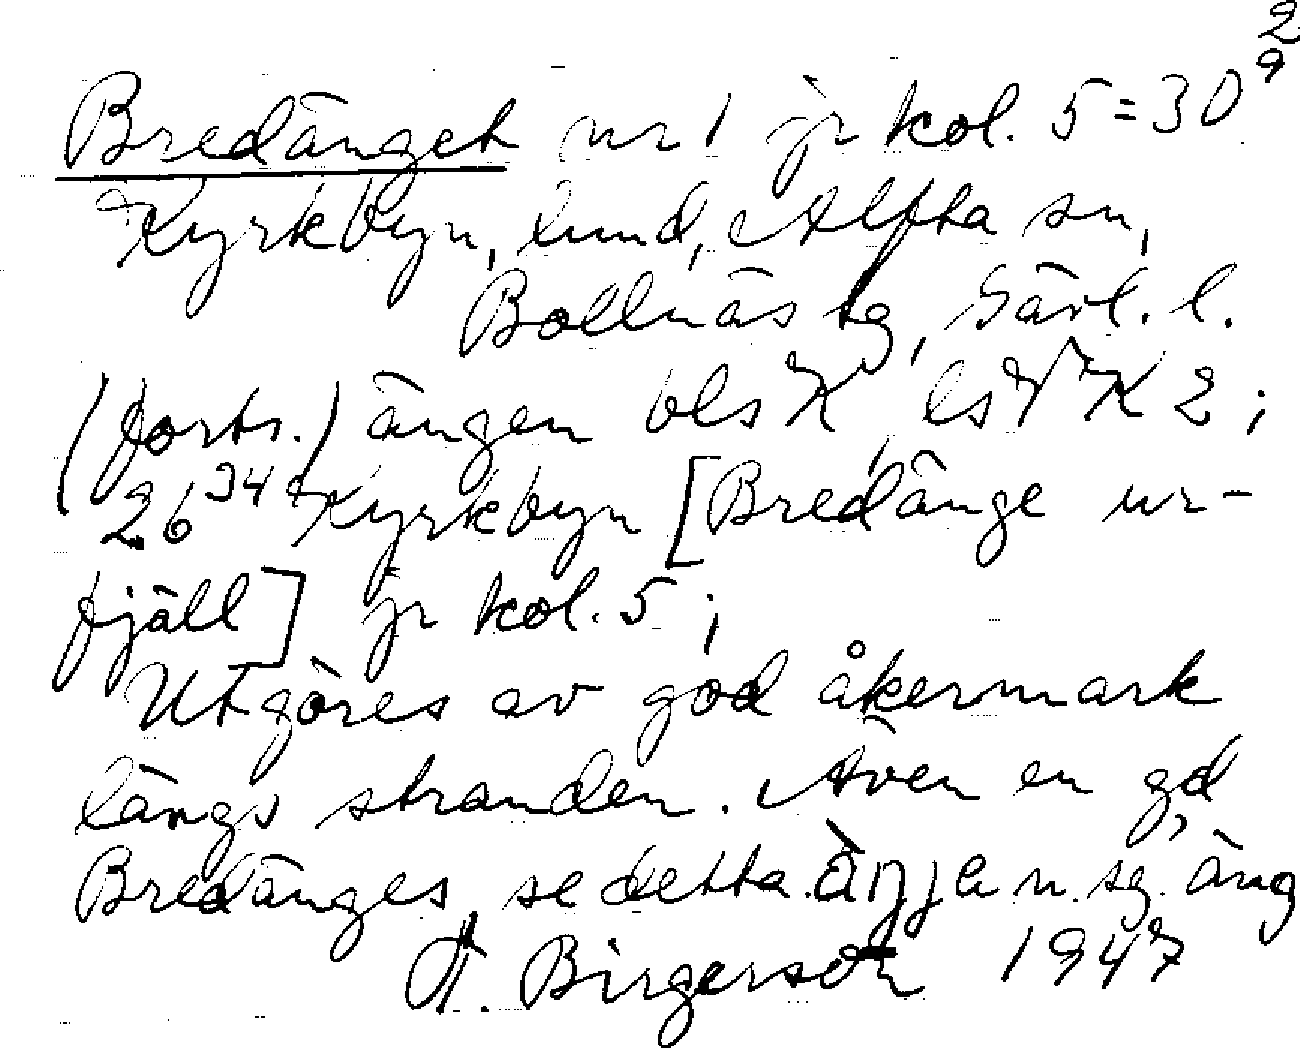 2
Bredänget nr 1 jr kol. 5 = 30⁹
Kyrkbyn, lund, Alfta sn,
Bollnäs tg, Gävl. l.
(forts.) ängen bls X, ls VX 2;
26³⁴ Kyrkbyn [Bredänge ur-
fjäll] jr kol. 5;
Utgöres av god åkermark
längs stranden. Även en gd,
Bredänges, se detta. àŋja n. sg. äng
A. Birgerson 1947